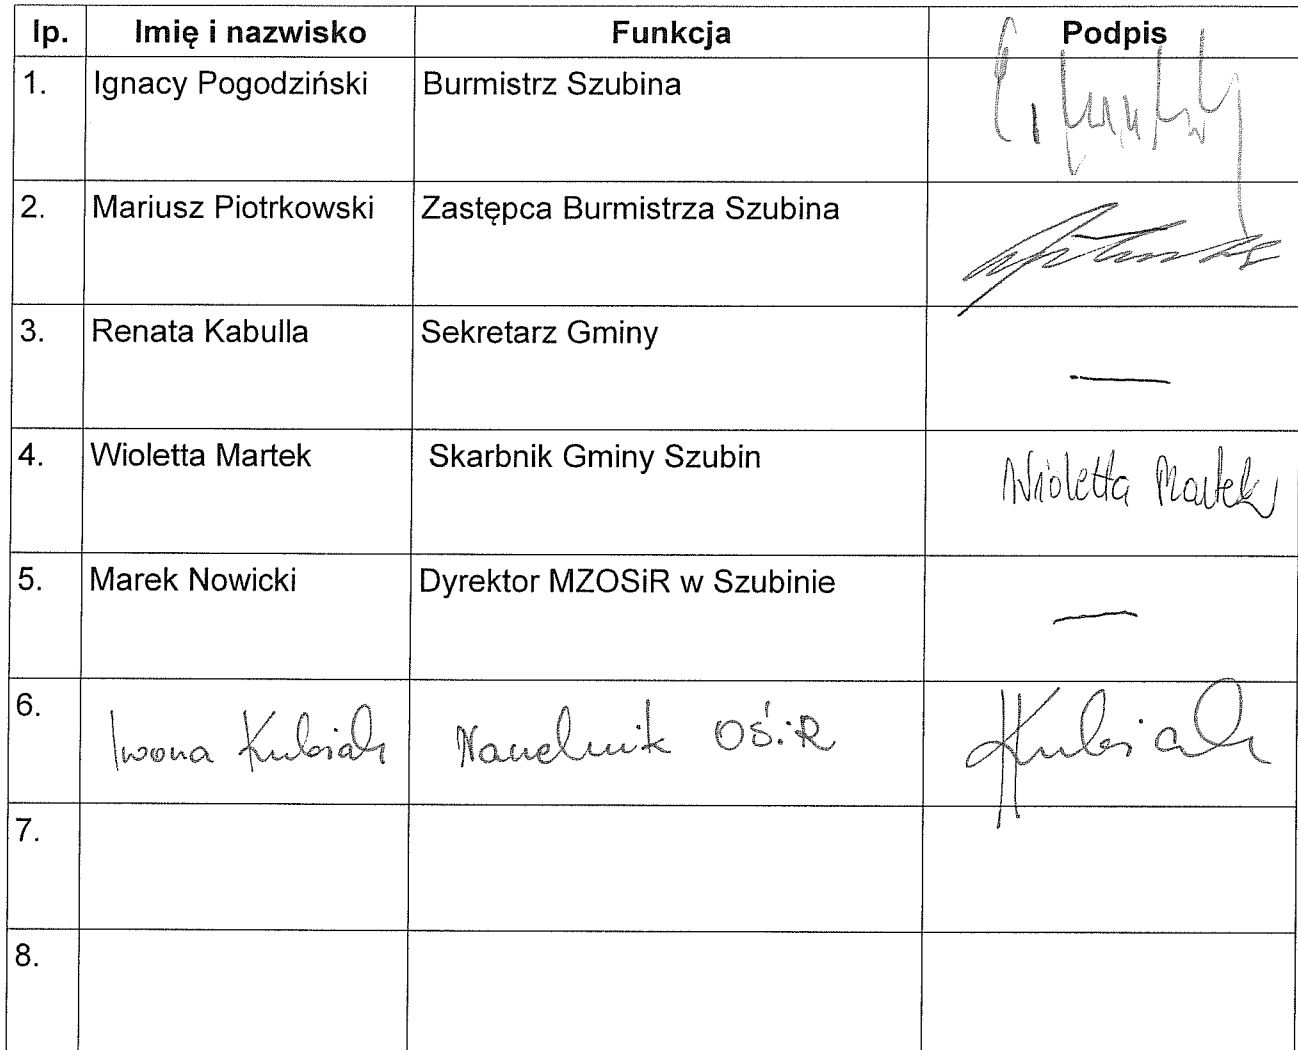 lp. Imię i nazwisko Funkcja Podpis
1. Ignacy Pogodziński Burmistrz Szubina
2. Mariusz Piotrkowski Zastępca Burmistrza Szubina
3. Renata Kabulla Sekretarz Gminy —
4. Wioletta Martek Skarbnik Gminy Szubin Wioletta Martek
5. Marek Nowicki Dyrektor MZOSiR w Szubinie —
6. Iwona Kubiak Naczelnik OŚiR Kubiak
7.
8.